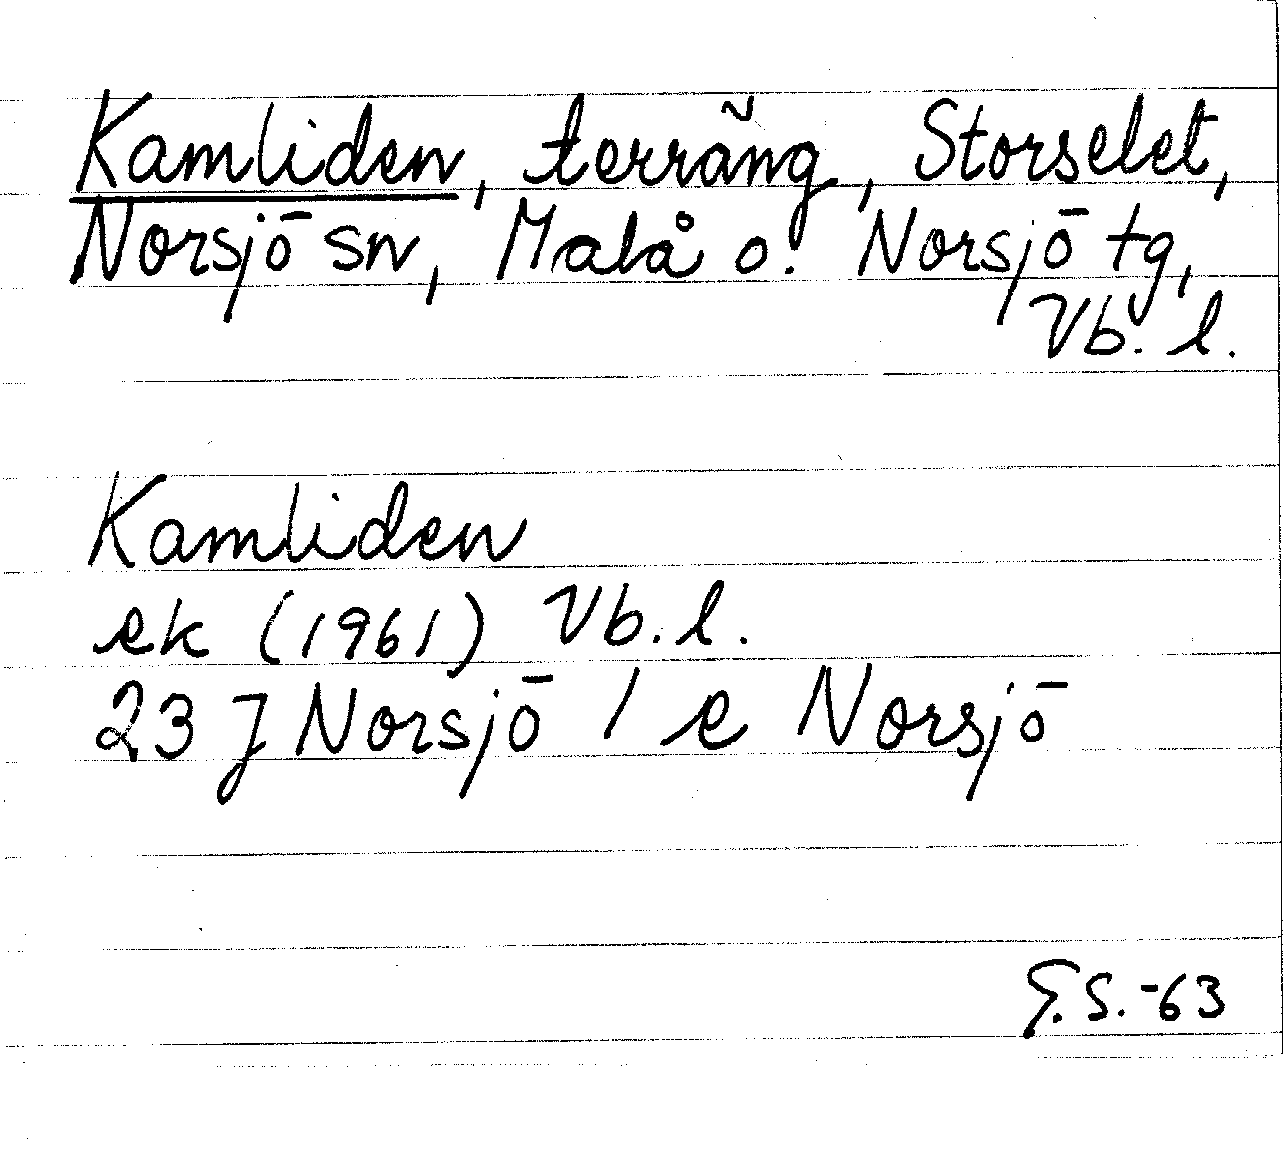 Kamliden, terräng, Storselet,
Norsjö sn, Malå o. Norsjö tg,
Vb. l.
Kamliden
ek (1961) Vb. l.
23 J Norsjö / e Norsjö
G.S.-63